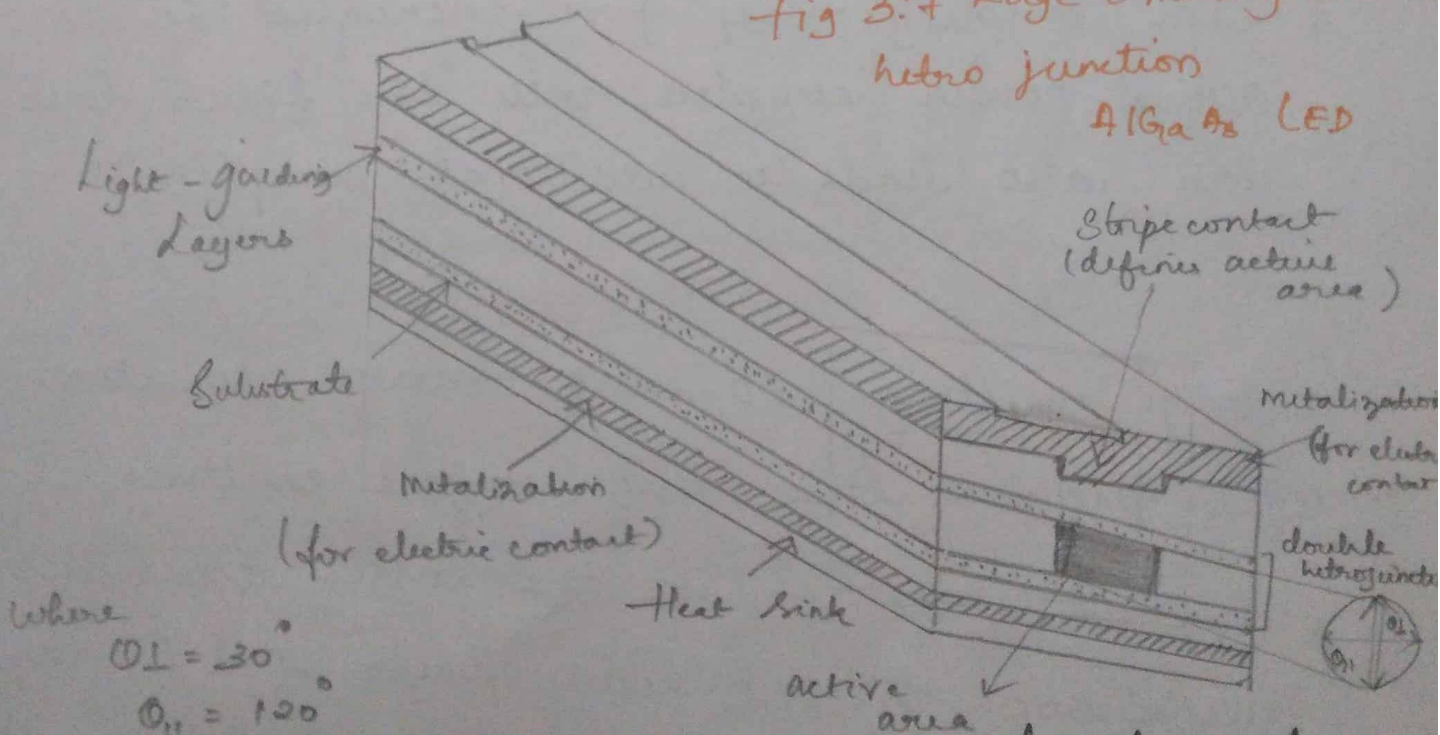 fig 3.7 Edge
hetro junction
AlGaAs LED
Light-guiding
Layers
Stripe contact
(defines active
area)
Substrate
metalization
(for electr
contact
metalization
(for electric contact)
double
hetrojuncti
Heat Sink
where
θ⊥ = 30°
θ॥ = 120°
active
area
θ⊥
θ॥